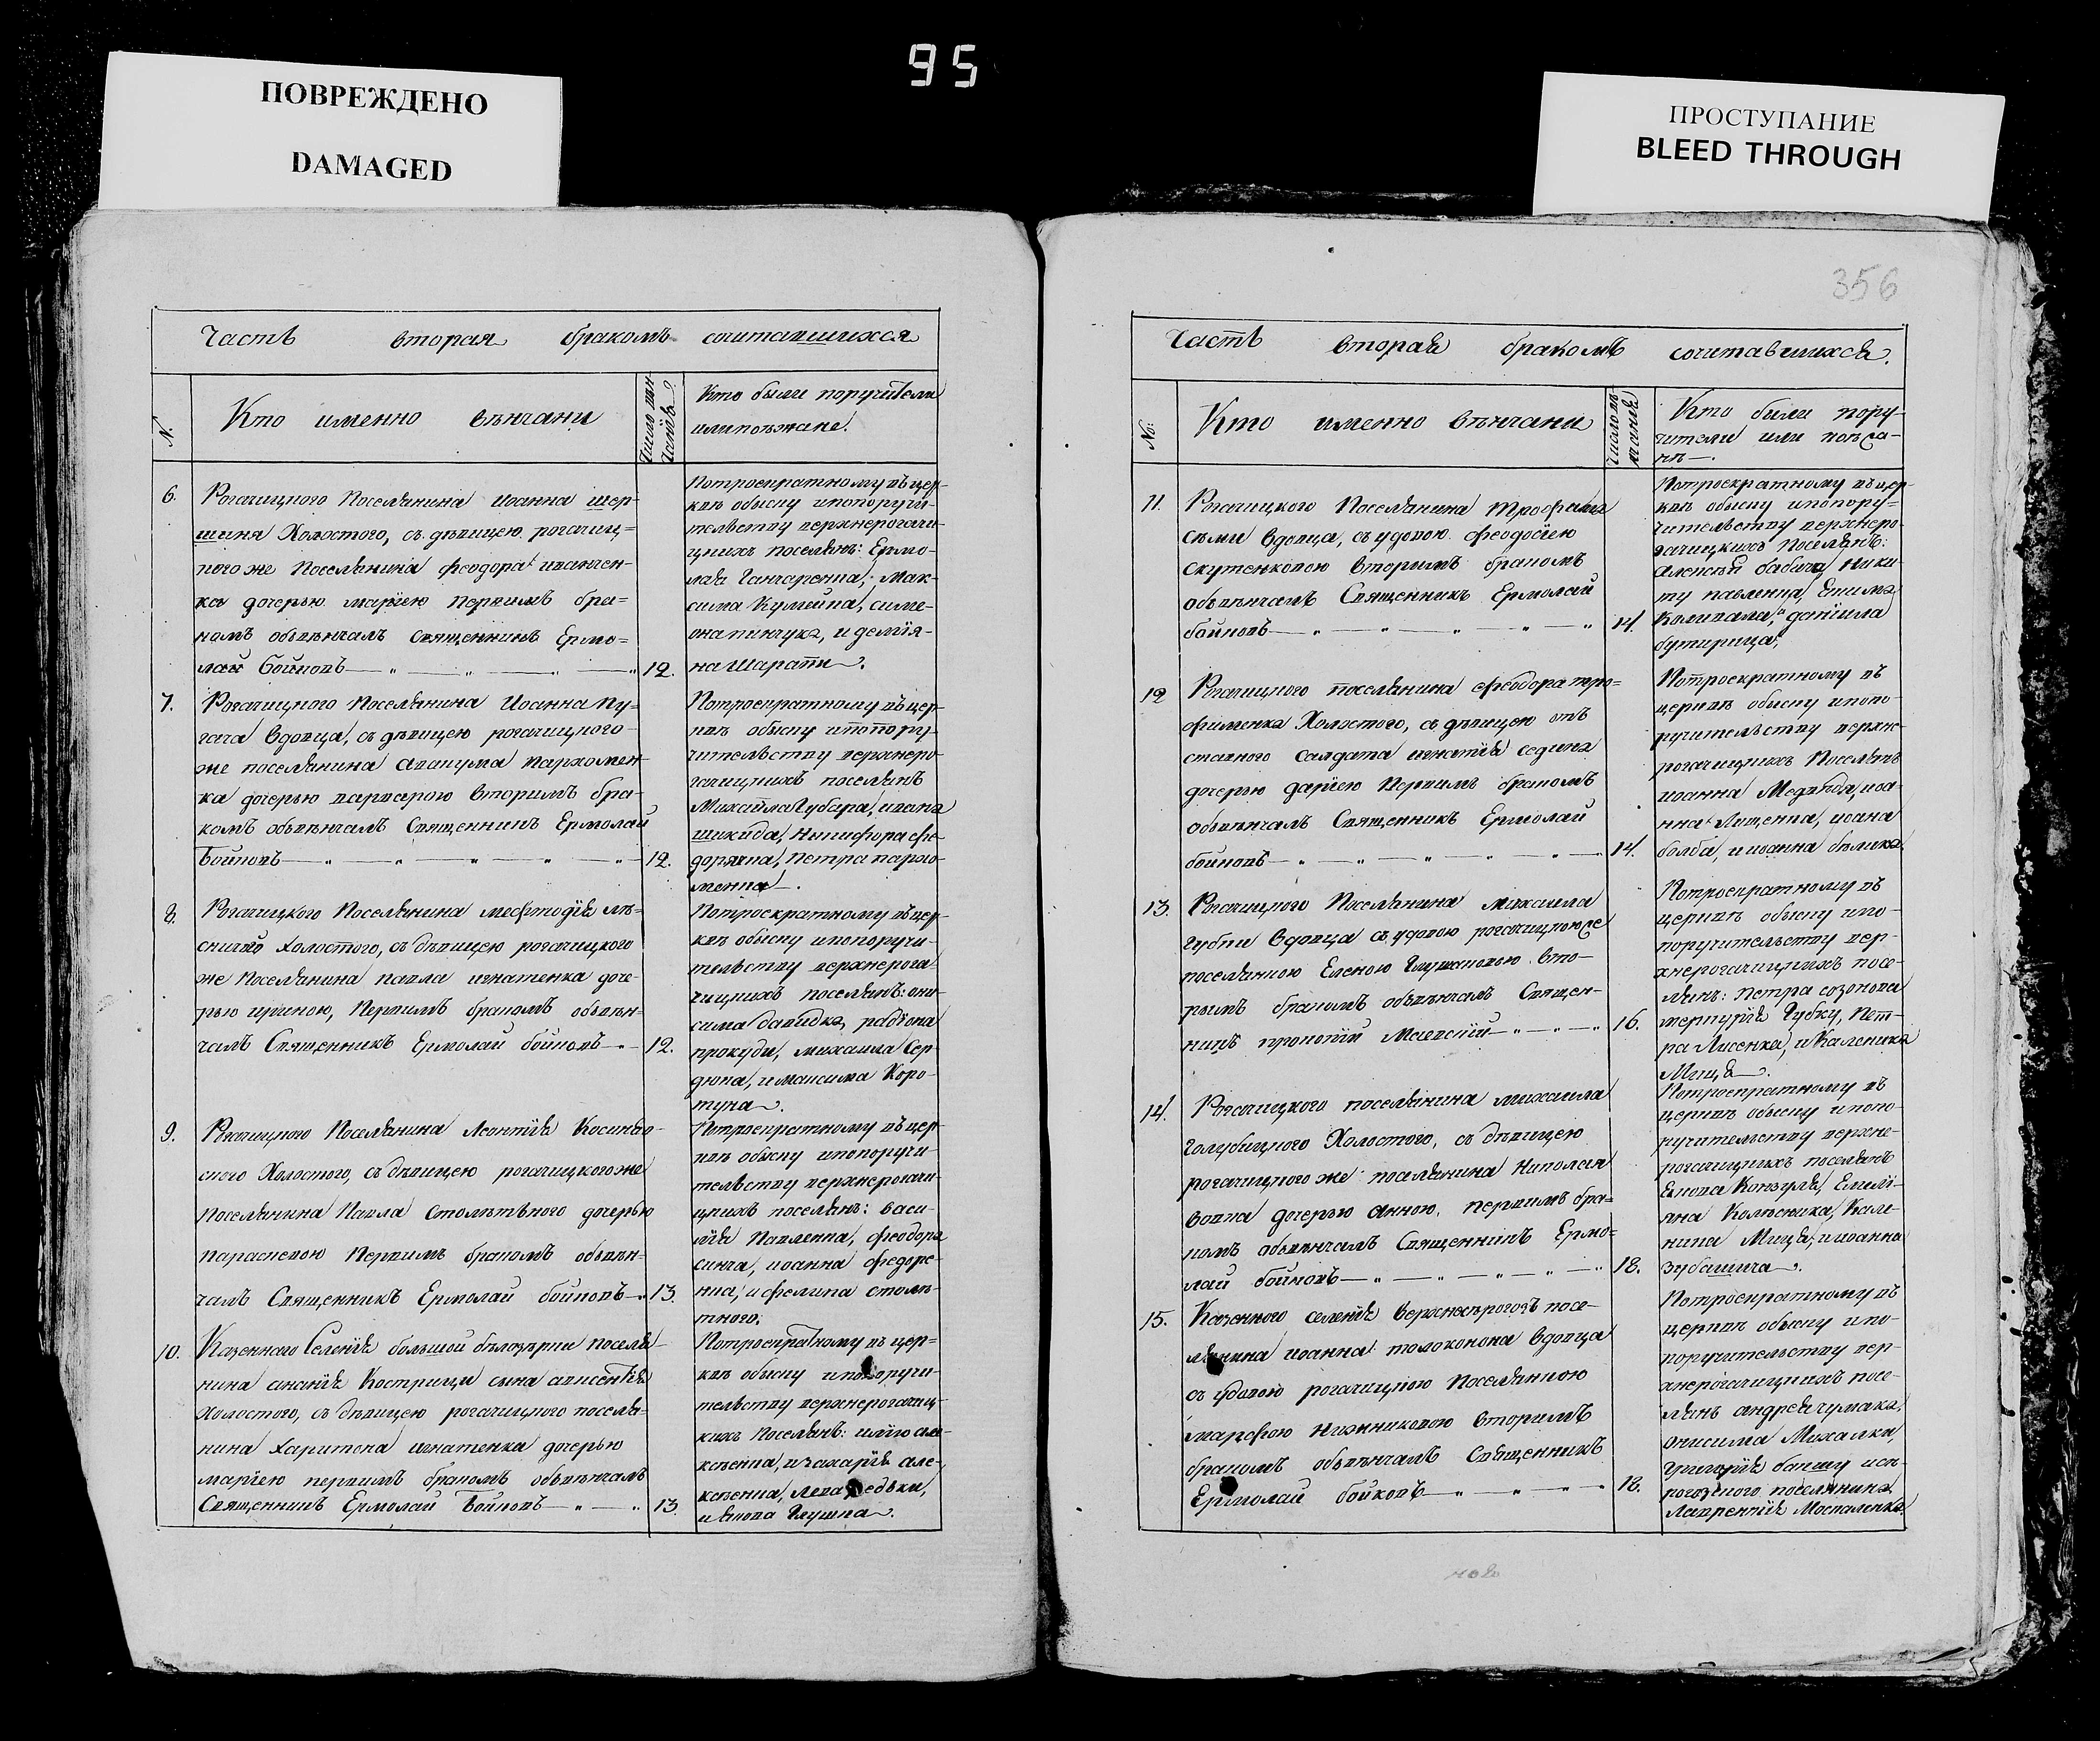 95
ПОВРЕЖДЕНО
DAMAGED
ПРОСТУПАНИЕ
BLEED THROUGH
Часть вторая бракомъ сочитавшихся
N. Кто именно вѣнчани
Число вѣн-
чанія
Кто были поручители
или поѣзжане.
6. Рогачицкого Поселянина Иоанна шер-
шиня Холостого, съ дѣвицею рогачиц=
кого же Поселянина феодора иванчен-
ка дочерью маріею первимъ бра=
комъ обвѣнчалъ Священникъ Ермо=
лай Бойковъ 12.
Потроекратному въ цер-
квѣ обыску ипопоручи-
тельству верхнерогачи-
цкихъ поселянъ: Ермо-
лая Ганчаренка, Мак-
сима Кумейка, симе-
она пинчука, и демія-
на Шарапи.
7. Рогачицкого Поселянина Иоанна Пу-
гача Вдовца, съ дѣвицею рогачицкого-
же поселянина Авакума Пархомен-
ка дочерью варварою вторимъ бра-
комъ обвѣнчалъ Священникъ Ермолай
Бойковъ 12.
Потроекратному въ цер-
квѣ обыску ипопору-
чительству верхнеро-
гачицкихъ поселянъ
Михаила Губаря, ивана
шикида, Никифора фе-
доряка, Петра пархо-
менка.
8. Рогачицкого Поселянина мефтодія лѣ=
сничого Холостого, съ дѣвицею рогачицкого
же Поселянина павла игнатенка доче-
рью ириною, Первимъ бракомъ обвѣн-
чалъ Священникъ Ермолай бойковъ 12.
Потроекратному въ цер-
квѣ обыску ипопоручи-
тельству верхнерога-
чицкихъ поселянъ: они-
сима давидка, радіона
прокуди, михаила Сер-
дюка, и максима Коро-
туна.
9. Рогачицкого Поселянина Леонтія Косинѣо-
сного Холостого, съ дѣвицею рогачицкого же
Поселянина Павла столѣтнього дочерью
параскевою Первимъ бракомъ обвѣн-
чалъ Священникъ Ермолай бойковъ 13.
Потроекратному въ цер-
квѣ обыску ипопоручи-
тельству верхнерогачи-
цкихъ поселянъ: васи-
лія Павленка, феодора
синча, иоанна федоре-
нка, и филипа столѣ-
тного.
10. Казенного Селенія большой бѣлозѣрки поселя-
нина ананія Кострици сина авксентія
Холостого, съ дѣвицею рогачицкого поселя-
нина харитона игнатенка дочерью
маріею первимъ бракомъ обвѣнчалъ
Священникъ Ермолай Бойковъ 13.
Потроекратному въ цер-
квѣ обыску ипопоручи-
тельству верхнерогачиц-
кихъ Поселянъ: илію але-
ксѣенка, и захарія але-
ксѣенка, Лева редьки,
и якова Глушка.
356
Часть вторая бракомъ сочитавшихся.
No: Кто именно вѣнчани
Число вѣ-
нчанія
Кто били пору-
чители или поѣзжа-
нѣ.
11. Рогачицкого Поселянина трофима
сѣми вдовца, съ удовою феодосіею
скутенковою вторимъ бракомъ
обвѣнчалъ Священникъ Ермолай
бойковъ 14.
Потроекратному въ цер-
квѣ обыску ипопору-
чительству верхнеро-
гачицкихъ Поселянъ:
алексѣй бабича, ники-
ту павленка, Екима
Коливала, даніила
бутирица.
12 Рогачицкого поселянина феодора тро=
фименка Холостого, съ дѣвицею отъ
ставного салдата игнатія седина
дочерью даріею Первимъ бракомъ
обвѣнчалъ Священникъ Ермолай
бойковъ 14.
Потроекратному въ
церквѣ обыску ипопо-
ручительству верхне-
рогачицкихъ Поселянъ
иоанна Медвѣдя, иоа-
нна Лященка, иоана
болба, и иоанна бѣлика
13. Рогачицкого Поселянина михаила
губки вдовца съ удовою рогачицкою же
поселянкою Еленою Глушковою вто-
римъ бракомъ обвѣнчалъ Священ-
никъ прокопій Маевскій 16.
Потроекратному въ
церквѣ обыску ипо-
поручительству вер-
хнерогачицкихъ посе-
лянъ: петра созонова
меркурія Губку, Пет-
ра Лисенка, и Каленика
Мица.
14. Рогачицкого поселянина михаила
голубицкого Холостого, съ дѣвицею
рогачицкого же поселянина николая
вовка дочерью анною, первимъ бра=
комъ обвѣнчалъ Священникъ Ермо=
лай бойковъ 18.
Потроекратному въ
церквѣ обыску ипопо-
ручительству верхне-
рогачицкихъ поселянъ
Якова Конзуля, Емелі-
яна Колѣсника, Кале-
ника Мица, и иоанна
зубашича.
15. Казенного селенія верхнѣрогозъ посе-
лянина иоанна толоконона вдовца
съ удовою рогачицкою поселянкою
марфою нижниковою вторимъ
бракомъ обвѣнчалъ Священникъ
Ермолай бойковъ 18.
Потроекратному въ
церквѣ обыску ипо-
поручительству вер-
хнерогачицкихъ посе-
лянъ андрея чумака,
онисима Михалка,
Григорія башшу исѣ-
рогозского поселянина
Лаврентія Москаленка.